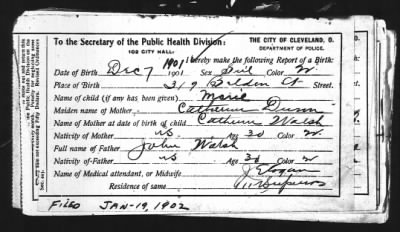 To the Secretary of the Public Health Division:
102 CITY HALL.
THE CITY OF CLEVELAND, O.
DEPARTMENT OF POLICE.
1901 I hereby make the following Report of a Birth:
Date of Birth Dec 7 1901 Sex Girl Color W
Place of Birth 319 Belden St Street
Name of child (if any has been given) Marie
Maiden name of Mother Catherine Dunn
Name of Mother at date of birth of child Catherine Walsh
Nativity of Mother US Age 30 Color W
Full name of Father John Walsh
Nativity of Father US Age 30 Color W
Name of Medical attendant, or Midwife.
Residence of same
FILED JAN-19, 1902